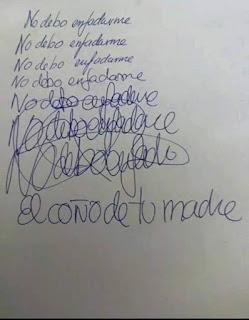 No debo enfadarme
No debo enfadarme
No debo enfadarme
No debo enfadarme
No debo enfadarme
No debo enfadarme
No debo
El coño de tu madre